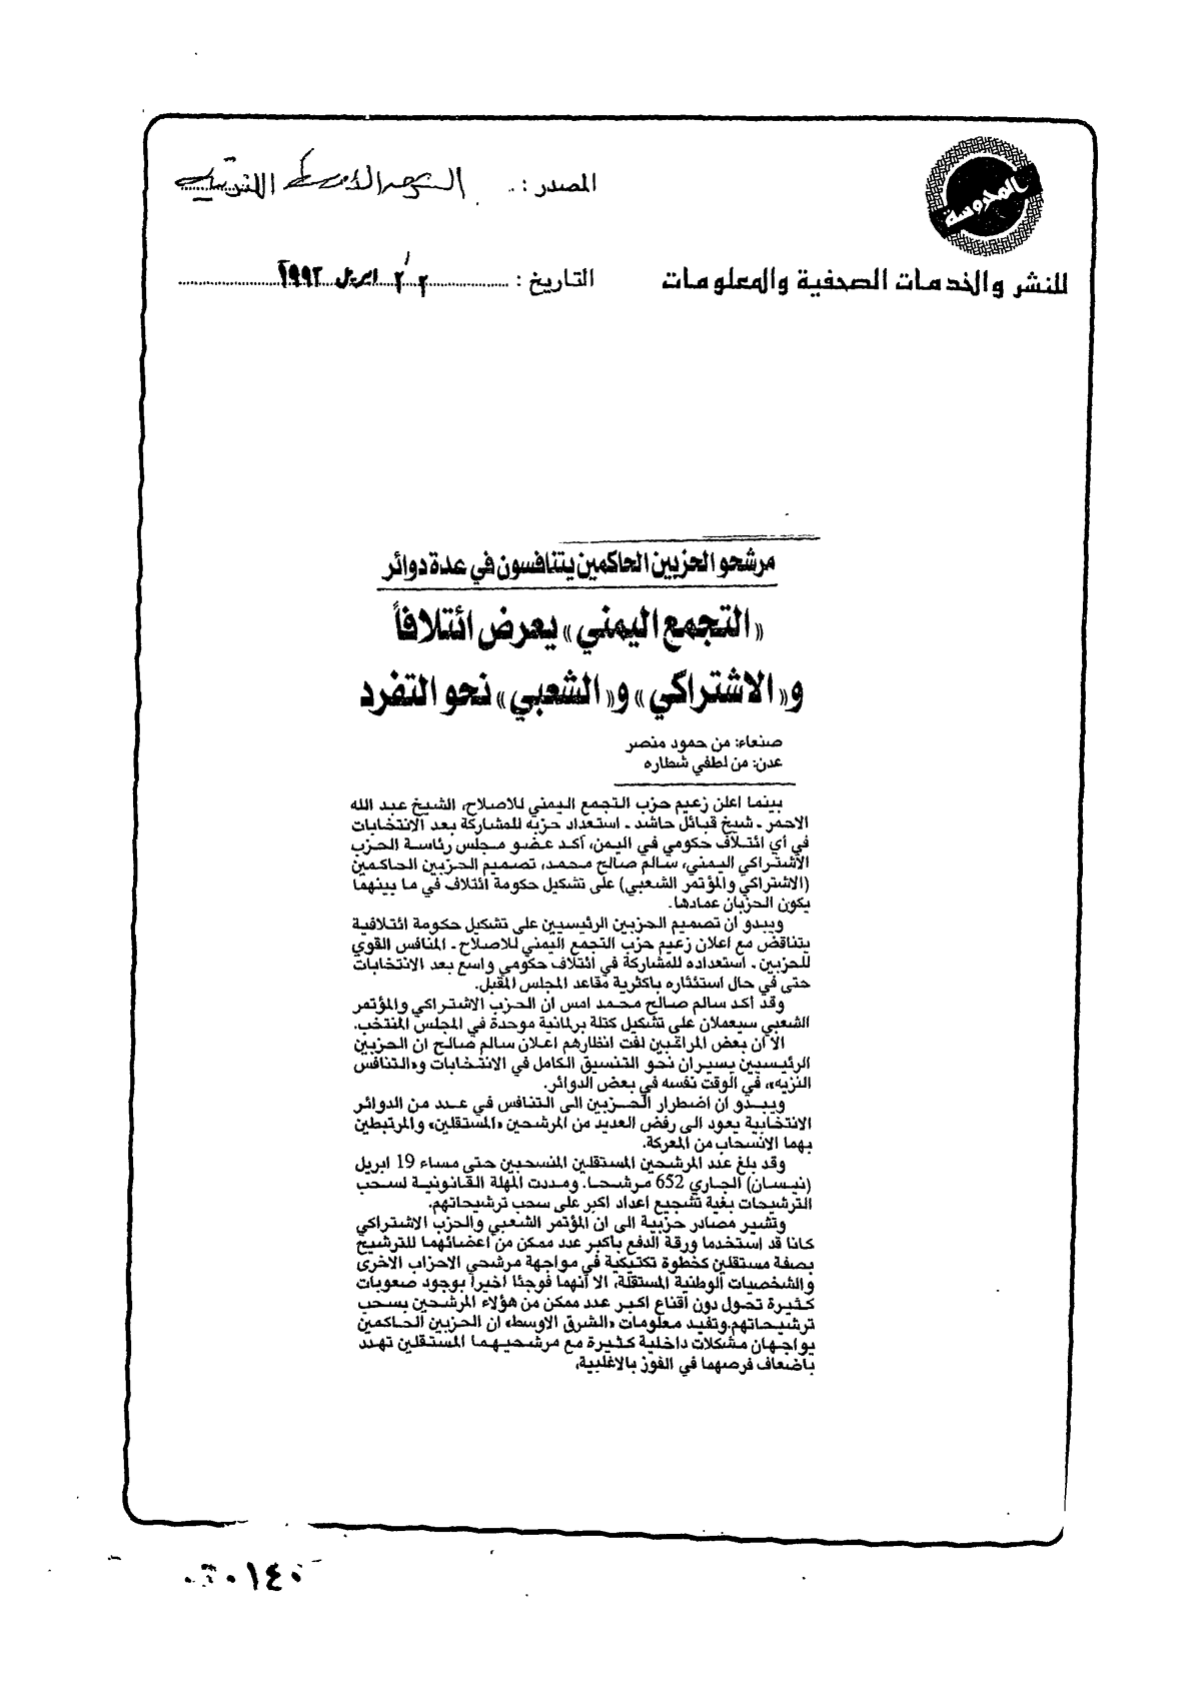 المحروسة
للنشر والخدمات الصحفية والمعلومات
المصدر : الشرق الاوسط اللندنية
التاريخ : ٢٢ ابريل ١٩٩٣
مرشحو الحزبين الحاكمين يتنافسون في عدة دوائر
«التجمع اليمني» يعرض ائتلافاً
و«الاشتراكي» و«الشعبي» نحو التفرد
صنعاء: من حمود منصر
عدن: من لطفي شطاره
بينما اعلن زعيم حزب التجمع اليمني للاصلاح، الشيخ عبد الله
الاحمر ـ شيخ قبائل حاشد ـ استعداد حزبه للمشاركة بعد الانتخابات
في أي ائتلاف حكومي في اليمن، أكد عضو مجلس رئاسة الحزب
الاشتراكي اليمني، سالم صالح محمد، تصميم الحزبين الحاكمين
(الاشتراكي والمؤتمر الشعبي) على تشكيل حكومة ائتلاف في ما بينهما
يكون الحزبان عمادها.
ويبدو ان تصميم الحزبين الرئيسيين على تشكيل حكومة ائتلافية
يتناقض مع اعلان زعيم حزب التجمع اليمني للاصلاح ـ المنافس القوي
للحزبين ـ استعداده للمشاركة في ائتلاف حكومي واسع بعد الانتخابات
حتى في حال استئثاره باكثرية مقاعد المجلس المقبل.
وقد أكد سالم صالح محمد امس ان الحزب الاشتراكي والمؤتمر
الشعبي سيعملان على تشكيل كتلة برلمانية موحدة في المجلس المنتخب.
الا ان بعض المراقبين لفت انظارهم اعلان سالم صالح ان الحزبين
الرئيسيين يسيران نحو التنسيق الكامل في الانتخابات و«التنافس
النزيه»، في الوقت نفسه في بعض الدوائر.
ويبدو ان اضطرار الحزبين الى التنافس في عدد من الدوائر
الانتخابية يعود الى رفض العديد من المرشحين «المستقلين» والمرتبطين
بهما الانسحاب من المعركة.
وقد بلغ عدد المرشحين المستقلين المنسحبين حتى مساء 19 ابريل
(نيسان) الجاري 652 مرشحا. ومددت المهلة القانونية لسحب
الترشيحات بغية تشجيع اعداد اكبر على سحب ترشيحاتهم.
وتشير مصادر حزبية الى ان المؤتمر الشعبي والحزب الاشتراكي
كانا قد استخدما ورقة الدفع باكبر عدد ممكن من أعضائهما للترشيح
بصفة مستقلين كخطوة تكتيكية في مواجهة مرشحي الاحزاب الاخرى
والشخصيات الوطنية المستقلة، الا أنهما فوجئا اخيرا بوجود صعوبات
كثيرة تحول دون أقناع اكبر عدد ممكن من هؤلاء المرشحين بسحب
ترشيحاتهم.وتفيد معلومات «الشرق الاوسط» ان الحزبين الحاكمين
يواجهان مشكلات داخلية كثيرة مع مرشحيهما المستقلين تهدد
باضعاف فرصهما في الفوز بالاغلبية.